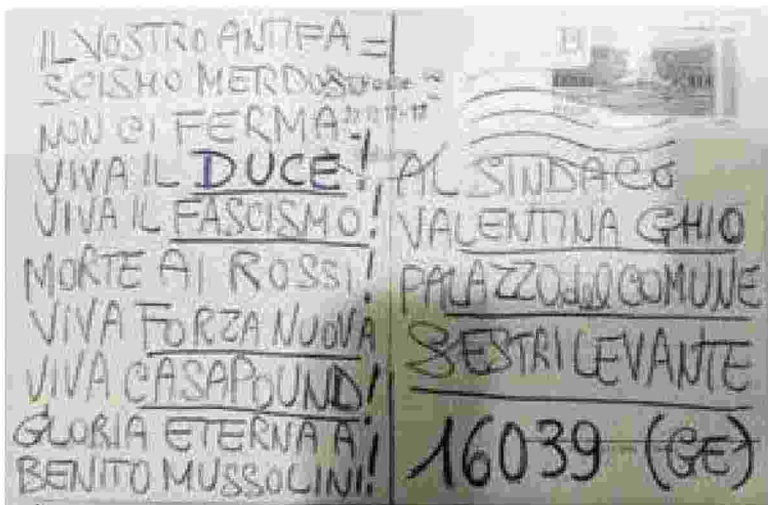 IL VOSTRO ANTIFA=
SCISMO MERDOSO
NON CI FERMA!
VIVA IL DUCE!
VIVA IL FASCISMO!
MORTE AI ROSSI!
VIVA FORZA NUOVA
VIVA CASAPOUND!
GLORIA ETERNA A
BENITO MUSSOLINI!
AL SINDACO
VALENTINA GHIO
PALAZZO del COMUNE
SESTRI LEVANTE
16039 (GE)